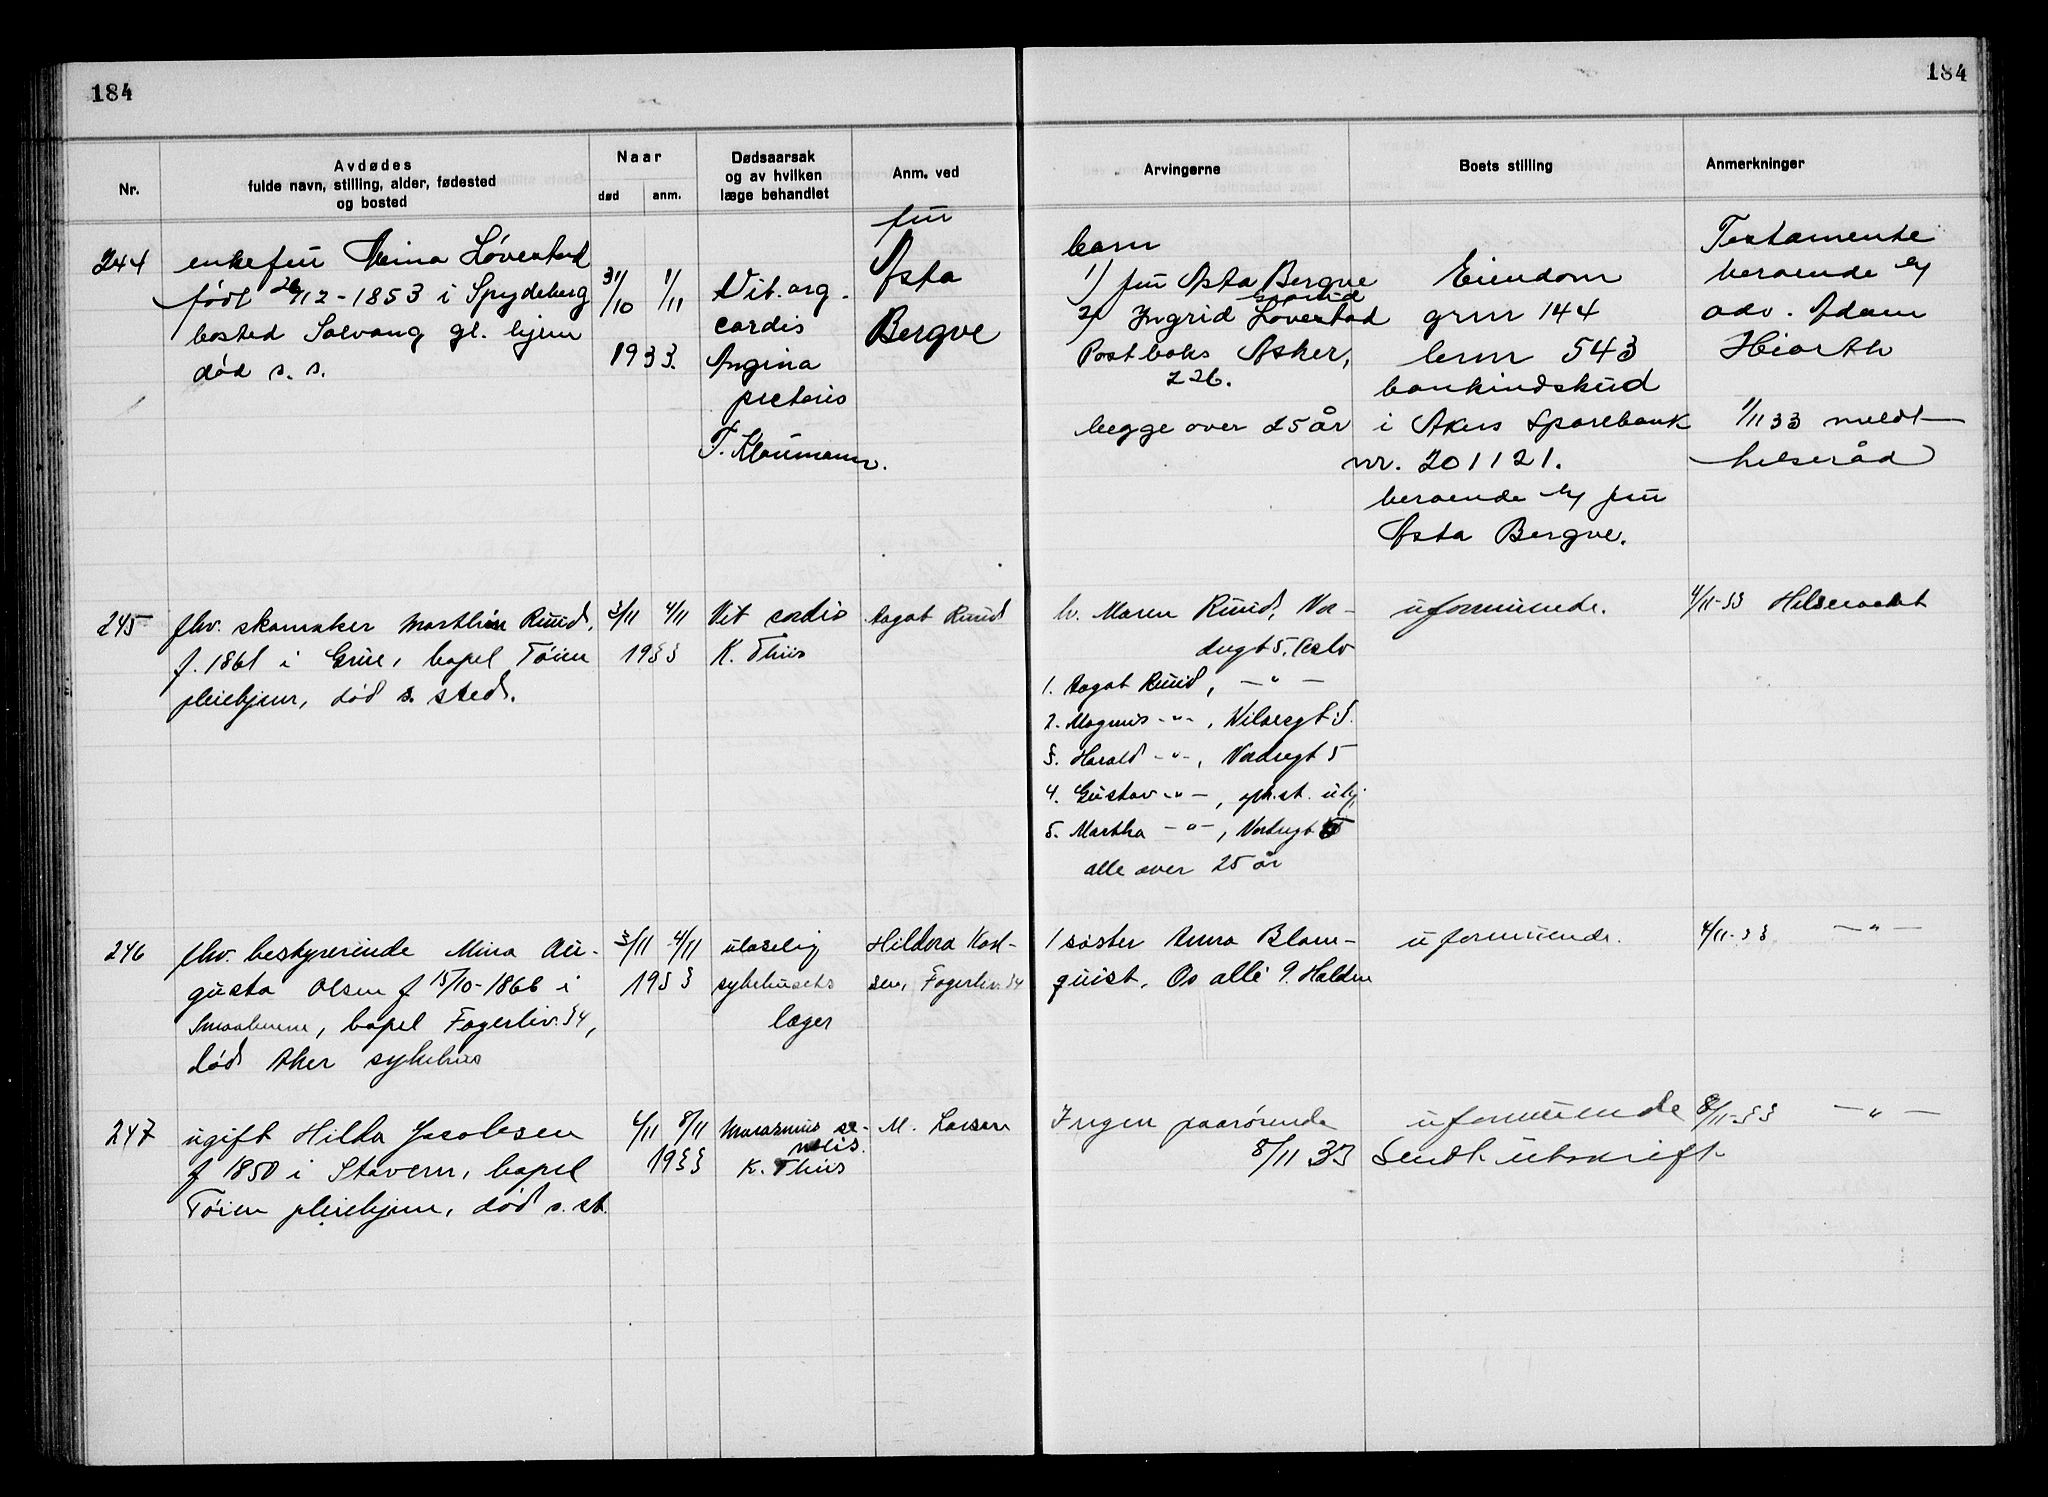 184
184
Nr.
Avdødes
fulde navn, stilling, alder, fødested
og bosted
Naar
død
anm.
Dødsaarsak
og av hvilken
læge behandlet
Anm. ved
Arvingerne
Boets stilling
Anmerkninger
244
enkefru Mina Løvestad
født 26/12-1853 i Spydeberg
bosted Solvang gl. hjem
død s. s.
31/10 1/11
1933.
Vit. org.
cordis
Angina
pectoris
T. Klaumann.
fru
Asta
Bergve
barn
1) fru Asta Bergve
2) Ingrid Løvestad
Postboks Asker,
226.
begge over 25 år
Eiendom
grnr 144
brnr 543
bankindskud
i Akers Sparebank
nr. 201121.
beroende h/ fru
Asta Bergve.
Testamente
beroende h/
adv. Adam
Hiorth
1/11 33 meldt
helseråd
245
fhv. skomaker Marthin Ruud,
f. 1861 i Grue, bopel Tøien
pleiehjem, død s. sted.
3/11 4/11
1933
Vit cordis
K. Thiis
Aagot Ruud
h. Maren Ruud, Vor-
dugt 5, Oslo
1. Aagot Ruud, — " —
2. Magnus - " - ,
3. Harald - " - ,
4. Gustav - " - ,
5. Martha - " - ,
alle over 25 år
uformuende.
4/11-33 Helseraadet
246
fhv. bestyrerinde Mina Au-
gusta Olsen f 15/10-1866 i
Smaalenene, bopel Fagerliv. 34,
død Aker sykehus
3/11 4/11
1933
ulæselig
sykehusets
læger
Hildora Karl-
sen, Fagerliv. 34
1 søster Anna Blom-
quist, Os allé 9. Halden
uformuende.
4/11-33 — " —
247
ugift Hilda Jacobsen
f 1850 i Stavern, bopel
Tøien pleiehjem, død s. st.
6/11 8/11
1933
Marasmus se-
nilis.
K. Thiis
M. Larsen
Ingen paarørende
uformuende
8/11-33 — " —
8/11 33 Sendt utskrift